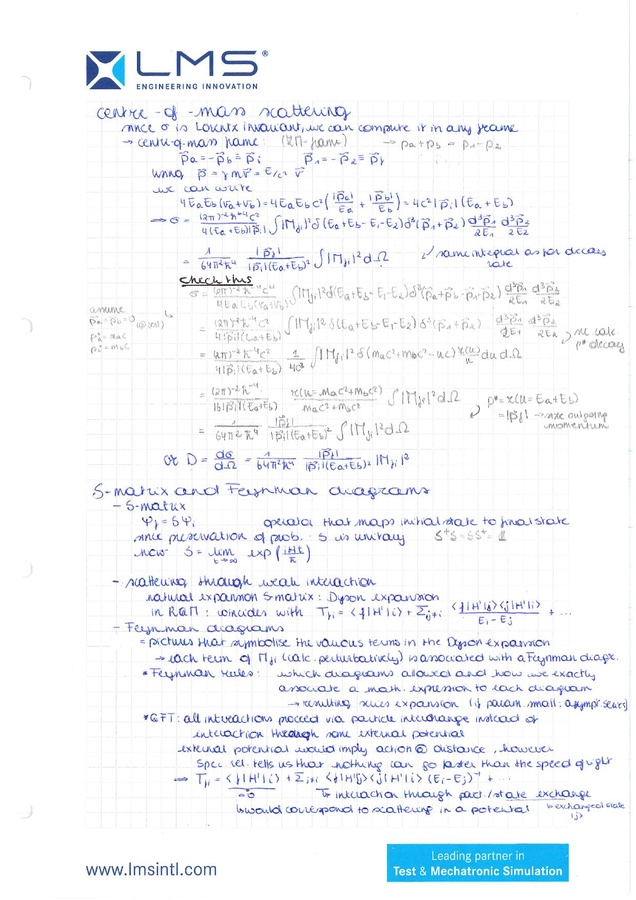 LMS®
ENGINEERING INNOVATION
centre-of-mass scattering
since σ is Lorentz invariant, we can compute it in any frame
→ centre-of-mass frame: (ZM-frame) → pa+pb = p1-p2
p⃗a = -p⃗b ≡ p⃗i p⃗1 = -p⃗2 ≡ p⃗f
using p⃗ = γmv⃗ = E/c² v⃗
we can write
4EaEb(va+vb) = 4EaEbc²(|p⃗a|/Ea + |p⃗b|/Eb) = 4c²|p⃗i|(Ea+Eb)
⇒ σ = (2π)⁻²ħ⁻⁴c²/4(Ea+Eb)|p⃗i| ∫|Mfi|²δ(Ea+Eb-E1-E2)δ³(p⃗1+p⃗2) d³p⃗1/2E1 d³p⃗2/2E2
= 1/64π²ħ⁴ |p⃗f|/|p⃗i|(Ea+Eb)² ∫|Mfi|²dΩ same integral as for decay rate
check this
σ = (2π)⁻²ħ⁻⁴c⁴/4EaEb(va+vb) ∫|Mfi|²δ(Ea+Eb-E1-E2)δ³(p⃗a+p⃗b-p⃗1-p⃗2) d³p⃗1/2E1 d³p⃗2/2E2
assume
= (2π)⁻²ħ⁻⁴c²/4|p⃗i|(Ea+Eb) ∫|Mfi|²δ(Ea+Eb-E1-E2)δ³(p⃗1+p⃗2) d³p⃗1/2E1 d³p⃗2/2E2
see calc. p* decay
= (2π)⁻²ħ⁻⁴c²/4|p⃗i|(Ea+Eb) ∫|Mfi|²δ(mac²+mbc²-uc) r(u)/u du dΩ
= (2π)⁻²ħ⁻⁴/16|p⃗i|(Ea+Eb) r(u=mac²+mbc²)/mac²+mbc² ∫|Mfi|²dΩ p* = r(u=Ea+Eb)
= |p⃗f| → size outgoing momentum
= 1/64π²ħ⁴ |p⃗f|/|p⃗i|(Ea+Eb)² ∫|Mfi|²dΩ
or D = dσ/dΩ = 1/64π²ħ⁴ |p⃗f|/|p⃗i|(Ea+Eb)² |Mfi|²
S-matrix and Feynman diagrams
- S-matrix
Ψf = SΨi operator that maps initial state to final state
since preservation of prob.: S is unitary S⁺S = SS⁺ = 𝟙
now S = lim t→∞ exp(iHt/ħ)
- scattering through weak interaction
natural expansion S-matrix: Dyson expansion
in RQM: coincides with Tfi = <f|H'|i> + Σj≠i <f|H'|j><j|H'|i>/Ei-Ej + ...
- Feynman diagrams
= pictures that symbolise the various terms in the Dyson expansion
→ each term of Mfi (calc. perturbatively) is associated with a Feynman diagr.
* Feynman rules: which diagrams allowed and how we exactly
associate a math. expression to each diagram
→ resulting series expansion (if param small: asympt. series)
* QFT: all interactions proceed via particle interchange instead of
interaction through some external potential
external potential would imply action @ distance, however
spec. rel. tells us that nothing can go faster than the speed of light
⇒ Tfi = <f|H'|i> + Σj≠i <f|H'|j><j|H'|i> (Ei-Ej)⁻¹ + ...
=0 ↳ interaction through part./state exchange
↳ would correspond to scattering in a potential ↳ exchanged state |j>
www.lmsintl.com
Leading partner in
Test & Mechatronic Simulation